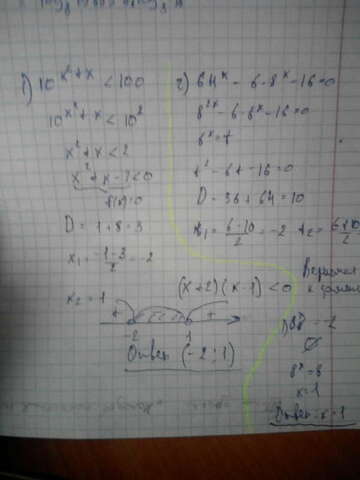 1) 10^(x²+x) < 100
10^(x²+x) < 10²
x²+x < 2
x²+x-2 < 0
f(x)=0
D = 1+8=3
x₁ = (-1-3)/2 = -2
x₂ = 1
(x+2)(x-1) < 0
+ +
-2 1
Ответ (-2;1)
2) 64^x - 6·8^x - 16 = 0
8^(2x) - 6·8^x - 16 = 0
t² - 6t - 16 = 0
D = 36+64=10
t₁ = (6-10)/2 = -2 t₂ = 6+10
Вернемся
к замене
1) 8^x = -2
∅
8^x = 8
x=1
Ответ: x=1